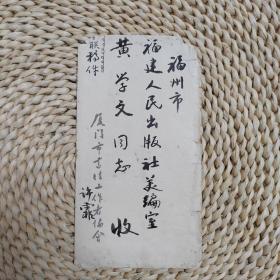 福州市
福建人民出版社美编室
黄学文同志 收
厦门市书法工作者协会
许霏
稿件